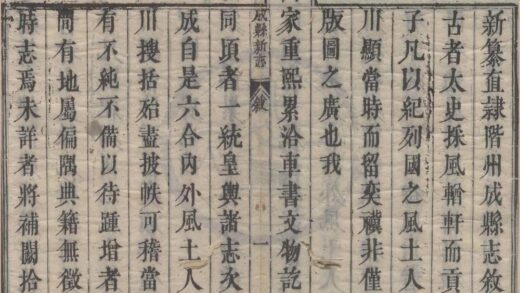 新纂直隷階州成縣志敘
古者太史採風輶軒而貢
子凡以紀列國之風土人
川顯當時而留奕禩非僅
版圖之廣也我
家重熙累洽車書文物訖
成縣新志 敘 一
同頃者一統皇輿諸志次
成自是六合内外風土人
川搜括殆盡披帙可稽當
有不純不備以待踵增者
間有地屬偏隅典籍無徵
時志焉未詳者將補闕拾